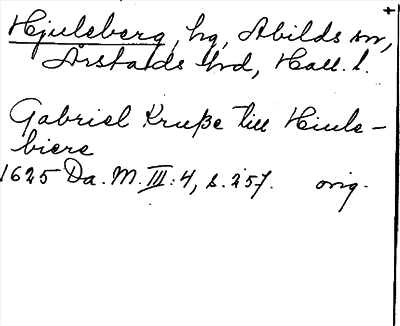 Hjulsberg, hg, Abilds sn,
Årstads hd, Hall. l.
Gabriel Kruße till Hiuls-
biere
1625 Da. M. III: 4, s. 257. orig.